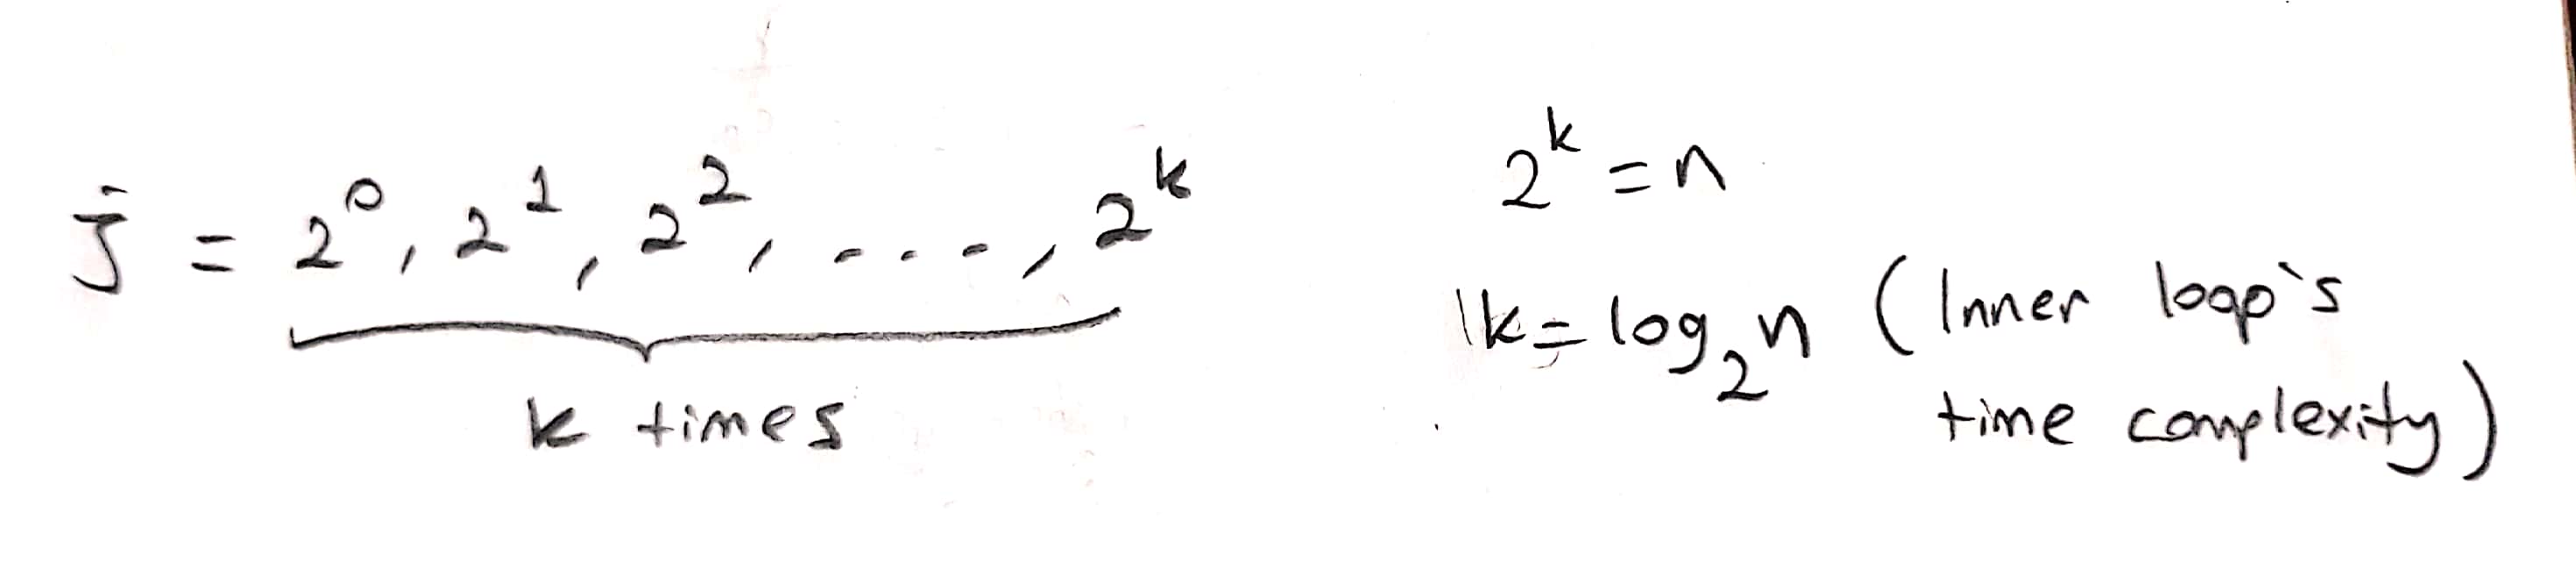 j = 2⁰, 2¹, 2², ...., 2ᵏ
k times
2ᵏ = n
k = log₂n (Inner loop's
time complexity)